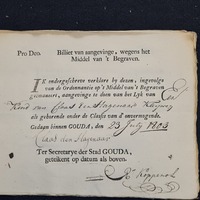 Pro Deo. Billiet van aangevinge, wegens het
Middel van 't Begraven.
IK ondergeschreve verklare by dezen, ingevolge
van de Ordonnantie op 't Middel van 't Begraven
gemaneert, aangevinge te doen van het Lyk van
Een
Kind van Claas den Hagenaar
als gehorende onder de Classis van d'onvermogende.
Gedaan binnen GOUDA, den 23 July 1803
Claas den Hagenaar
Ter Secretarye der Stad GOUDA,
geteikent op datum als boven.